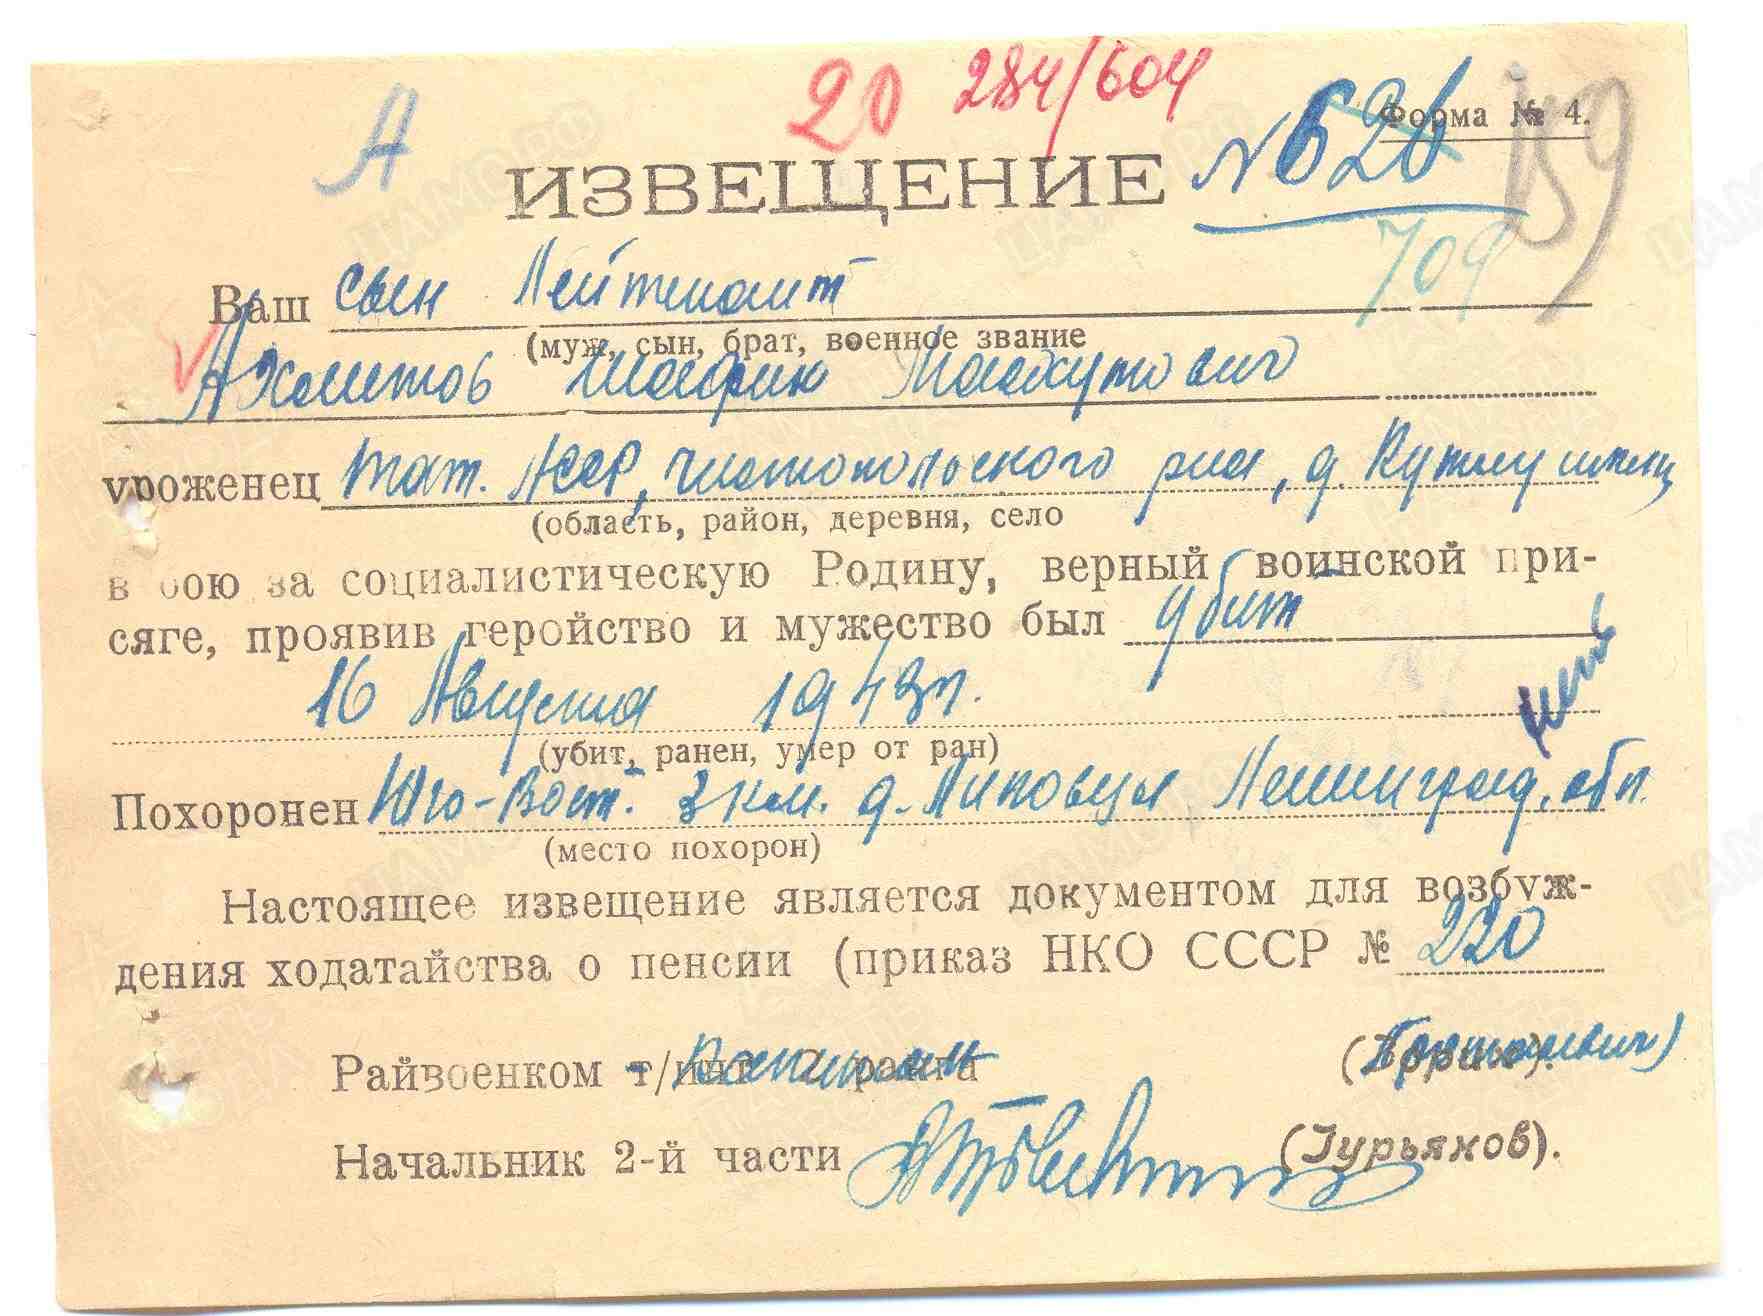 А 20 284/604
Форма № 4.
ИЗВЕЩЕНИЕ № 626 159
709
Ваш сын Лейтенант
(муж, сын, брат, военное звание
Ахметов Шафик Махмутович
уроженец Тат. АССР, Чистопольского р-на, д. Кутлушкино
(область, район, деревня, село
в бою за социалистическую Родину, верный воинской при-
сяге, проявив геройство и мужество был убит
16 Августа 1943 г.
(убит, ранен, умер от ран)
Похоронен Юго-Вост. 3 км. д. Липовец Ленинград. обл.
(место похорон)
Настоящее извещение является документом для возбуж-
дения ходатайства о пенсии (приказ НКО СССР № 220
Райвоенком т/инт ранга Капитан
Начальник 2-й части (Гурьянов).